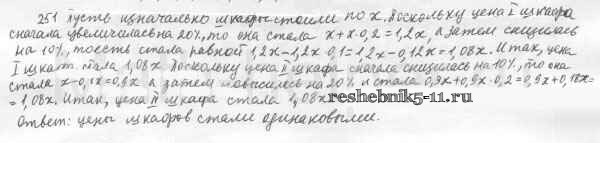 251 Пусть изначально шкафы стоили по x. Поскольку цена I шкафа
сначала увеличилась на 20%, то она стала x+x·0,2=1,2x, а затем снизилась
на 10%, то есть стала равной 1,2x-1,2x·0,1=1,2x-0,12x=1,08x. Итак, цена
I шкаф. стала 1,08x. Поскольку цена II шкафа сначала снизилась на 10%, то она
стала x-0,1x=0,9x, а затем повысилась на 20% и стала 0,9x+0,9x·0,2=0,9x+0,18x=
=1,08x. Итак, цена II шкафа стала 1,08x
reshebnik5-11.ru
Ответ: цены шкафов стали одинаковыми.